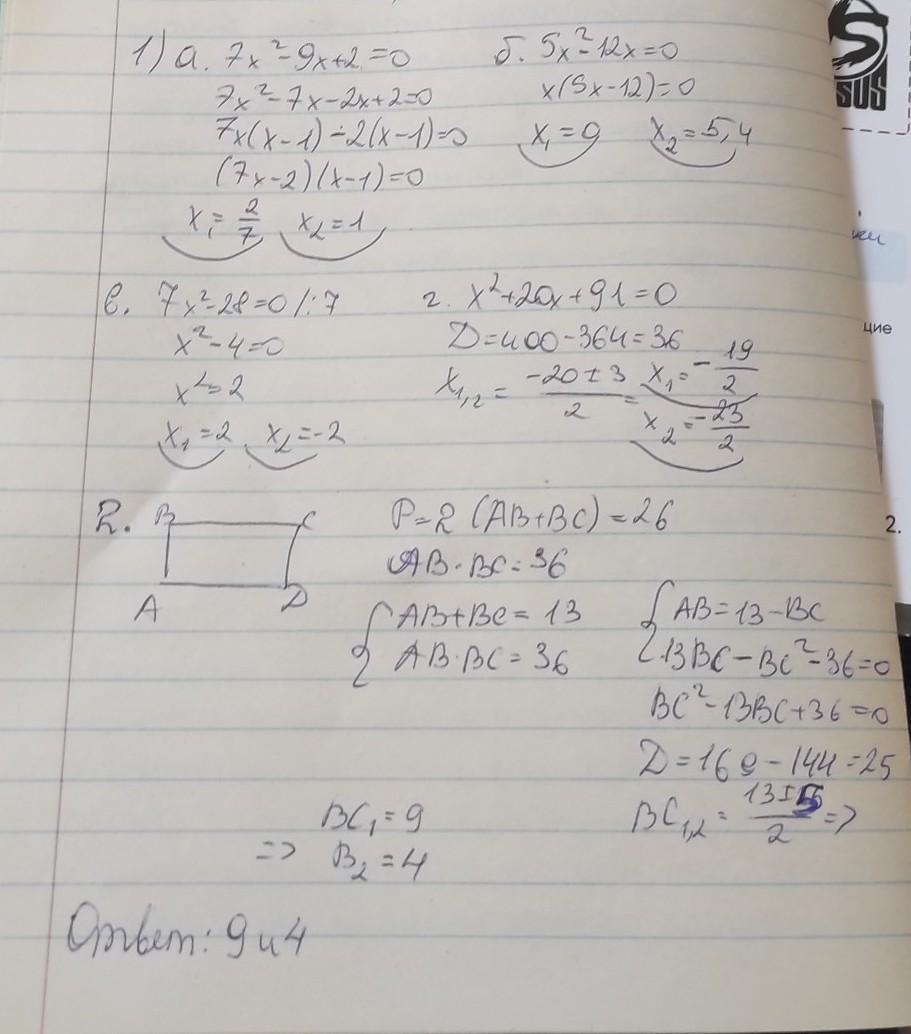 1) а. 7x² - 9x + 2 = 0
7x² - 7x - 2x + 2 = 0
7x(x-1) - 2(x-1) = 0
(7x-2)(x-1) = 0
x₁ = 2/7 x₂ = 1
б. 5x² - 12x = 0
x(5x-12) = 0
x₁ = 9 x₂ = 5,4
в. 7x² - 28 = 0 /:7
x² - 4 = 0
x² = 2
x₁ = 2 x₂ = -2
г. x² + 20x + 91 = 0
D = 400 - 364 = 36
x₁,₂ = (-20 ± 3)/2 = x₁ = -19/2
x₂ = -23/2
2. B C
A D
P = 2 (AB+BC) = 26
AB · BC = 36
{ AB + BC = 13
AB · BC = 36
{ AB = 13 - BC
13BC - BC² - 36 = 0
BC² - 13BC + 36 = 0
D = 169 - 144 = 25
BC₁,₂ = (13 ± 5)/2 =>
=> BC₁ = 9
B₂ = 4
Ответ: 9 и 4
SUS
щие
2.